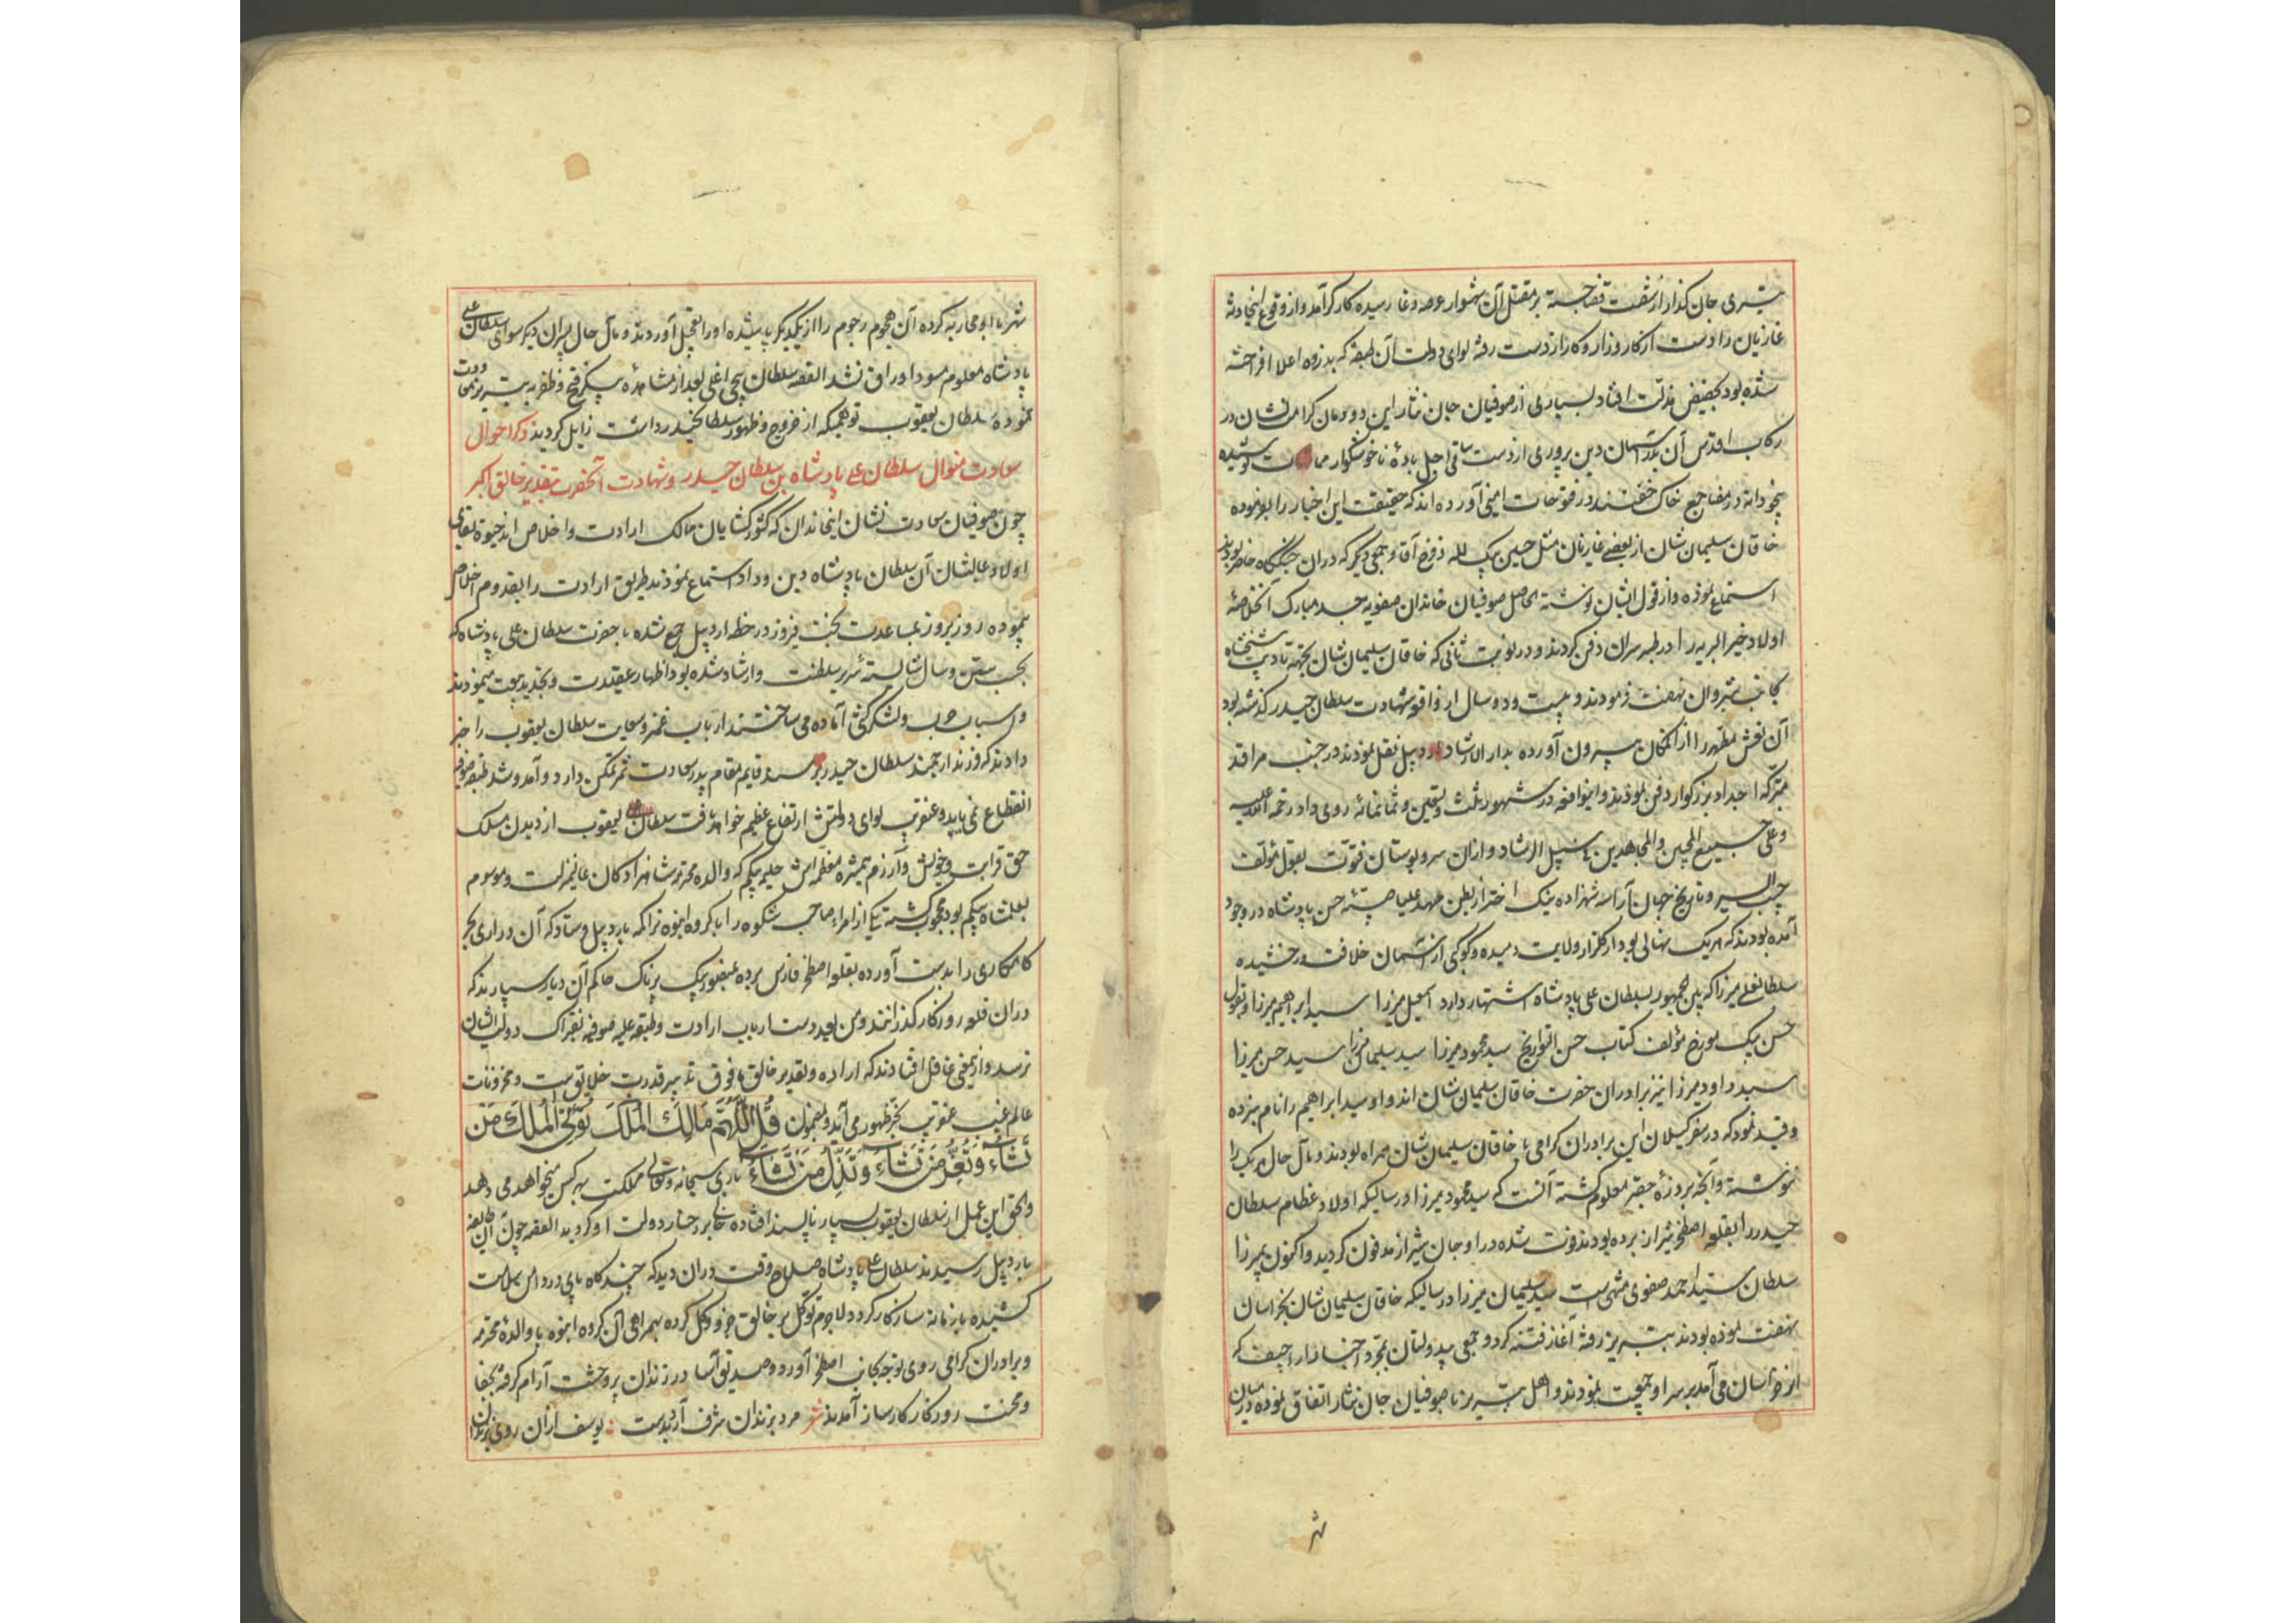 تیری جان گذار از شصت قضا جسته بر مقتل آن شهسوار عرصه وغا رسیده کارگر آمد و از وقوع اینحادثه
غازیان را دست از کار و زار و کار از دست رفته لوای دولت آن طبقه که بذروه اعلا افراخته
شده بود بحضیض مذلت افتاد بسیاری از صوفیان جان نثار این دودمان کرامت نشان در
رکاب اقدس آن دین پروری از دست ساقی اجل بادهٔ ناخوشگوار ممات نوشیده
بیخودانه در مضاجع خاک خفتند در فتوحات امینی آورده اند که حقیقت این اخبار را نموده
خاقان سلیمان شان از بعضی غازیان مثل حسین بیک لله و فرخ آقا و جمعی دیگر که در ان جنگگاه حاضر بودند
استماع نموده و از قول ایشان نوشته الحاصل صوفیان خاندان صفویه جسد مبارک آنخلاصهٔ
اولاد خیر البریه را در طبرسران دفن کردند و در نوبت ثانی که خاقان سلیمان شان بجهة تادیب
بجانب شیروان نهضت فرمودند و بیست و دو سال از واقعه شهادت سلطان حیدر گذشته بود
آن نعش مطهر را از انمکان بیرون آورده بدار الارشاد اردبیل نقل نمودند در جنب مراقد
متبرکه اجداد بزرگوار دفن نمودند و اینواقعه در شهور ثلث و تسعین و ثمانمائه روی داد رحمه الله علیه
و علی جمیع المحبین و المجاهدین فی سبیل الرشاد و از ان سرو بوستان فتوت بقول مؤلف
حبیب السیر و تاریخ جهان آرا سه شهزاده نیک اختر از بطن مهد علیا صبیهٔ حسن پادشاه در وجود
آمده بودند که هر یک نهالی بود از گلزار ولایت دمیده و کوکبی از آسمان خلافت درخشیده
سلطانعلی میرزا که بین الجمهور بسلطان علی پادشاه اشتهار دارد اسمعیل میرزا سید ابراهیم میرزا و بقول
حسن بیک مورخ مؤلف کتاب احسن التواریخ سید محمود میرزا سید سلیمان میرزا سید حسن میرزا
سید داود میرزا نیز برادران حضرت خاقان سلیمان شان اند و او سید ابراهیم را نام نبرده
و قید نمود که در سفر گیلان این برادران گرامی با خاقان سلیمان شان همراه بودند و مآل حال هر یک را
ننوشته و آنچه بر ذرهٔ حقیر معلوم گشته آنست که سید محمود میرزا در سالیکه اولاد عظام سلطان
حیدر را بقلعه اصطخر شیراز برده بودند فوت شده در اوجان شیراز مدفون گردید و اکنون بمیرزا
سلطان سید احمد صفوی مشهور است سید سلیمان میرزا در سالیکه خاقان سلیمان شان بخراسان
نهضت نموده بودند بتبریز رفته آغاز فتنه کرد و جمعی بیدولتان بمجرد اخبار اراجیف که
از خراسان می آمد بر سر او جمعیت نمودند و اهل تبریز با صوفیان جان نثار اتفاق نموده در میان
شهر
شهر با او محاربه کرده آن هجوم رجوم را از یکدیگر پاشیده او را بقتل آوردند و مآل حال پسران دیگر سوای سلطان علی
پادشاه معلوم مسود اوراق نشد القصه سلطان یعقوب بعد از مشاهده پیکر فتح و ظفر به تبریز معاودت
نموده سلطان یعقوب توهمیکه از خروج و ظهور سلطان حیدر داشت زایل گردید ذکر احوال
سعادت منوال سلطان علی پادشاه بن سلطان حیدر و شهادت آنحضرت بتقدیر خالق اکبر
چون صوفیان سعادت نشان اینخاندان که کشور گشایان ممالک ارادت و اخلاص اند حیوة و بقای
اولاد عالیشان آن سلطان پادشاه دین و داد استماع نمودند طریق ارادت را بقدوم اخلاص
پیموده روز بروز بمساعدت بخت فیروز در خطه اردبیل جمع شده با حضرت سلطان علی پادشاه که
بحسب سن و سال شایسته سریر سلطنت و ارشاد شده بود اظهار عقیدت و تجدید بیعت مینمودند
و اسباب حرب و لشکر کشی آماده می ساختند ارباب غمز و سعایت سلطان یعقوب را خبر
دادند که فرزند ارجمند سلطان حیدر بر مسند قایم مقام پدر سعادت ثمر تمکن دارد و آمد و شد طبقه صوفیه
انقطاع نمی یابد و عنقریب لوای دولتش ارتفاع عظیم خواهد یافت سلطان یعقوب از دیدن مسلک
حق قرابت و خویش و آزرم همشیره معظمه اش حلیمه بیگم که والده محترمه شاهزادگان عالیمنزلت و موسوم
بعلمشاه بیگم بود محجوب گشته یکی از امراء صاحب شکوه را با گروه انبوه ترا کمه باردبیل فرستاد که آن دراری بحر
کامکاری را بدست آورده بقلعه اصطخر فارس برده بمنصور بیک پرناک حاکم آن دیار سپارند که
در ان قلعه روزگار گذرانند و من بعد دست ارباب ارادت و طبقه علیه صوفیه بفتراک دولت ایشان
نرسد و ازینمعنی غافل افتادند که اراده و تقدیر خالق مافوق تدبیر قدرت خلایق است و مخزونات
عالم غیب عنقریب بحیز ظهور می آید و بمضمون قُلِ اللّٰهُمَّ مَالِكَ الْمُلْكِ تُؤْتِي الْمُلْكَ مَنْ
تَشَاءُ وَتُعِزُّ مَنْ تَشَاءُ وَتُذِلُّ مَنْ تَشَاءُ باری سبحانه و تعالی مملکت بهر کس میخواهد می دهد
و الحق این عمل از سلطان یعقوب بسیار ناپسند افتاده خالی بر رخسار دولت او گردید القصه چون آن طایفه
باردبیل رسیدند سلطان علی پادشاه صلاح وقت در ان دید که چند گاه پای در دامن سلامت
کشیده با زمانه سازگار گردد لاجرم توکل بر خالق جزو و کل کرده بهمراهی آن گروه انبوه با والدهٔ محترمه
و برادران گرامی روی توجه بجانب اصطخر آورد و صدیق آسا در زندان پر وحشت آرام گرفته بجفا
و محنت روزگار کار ساز آمدند شعر مرد بزندان شرف آرد بدست یوسف از ان روی بزندان